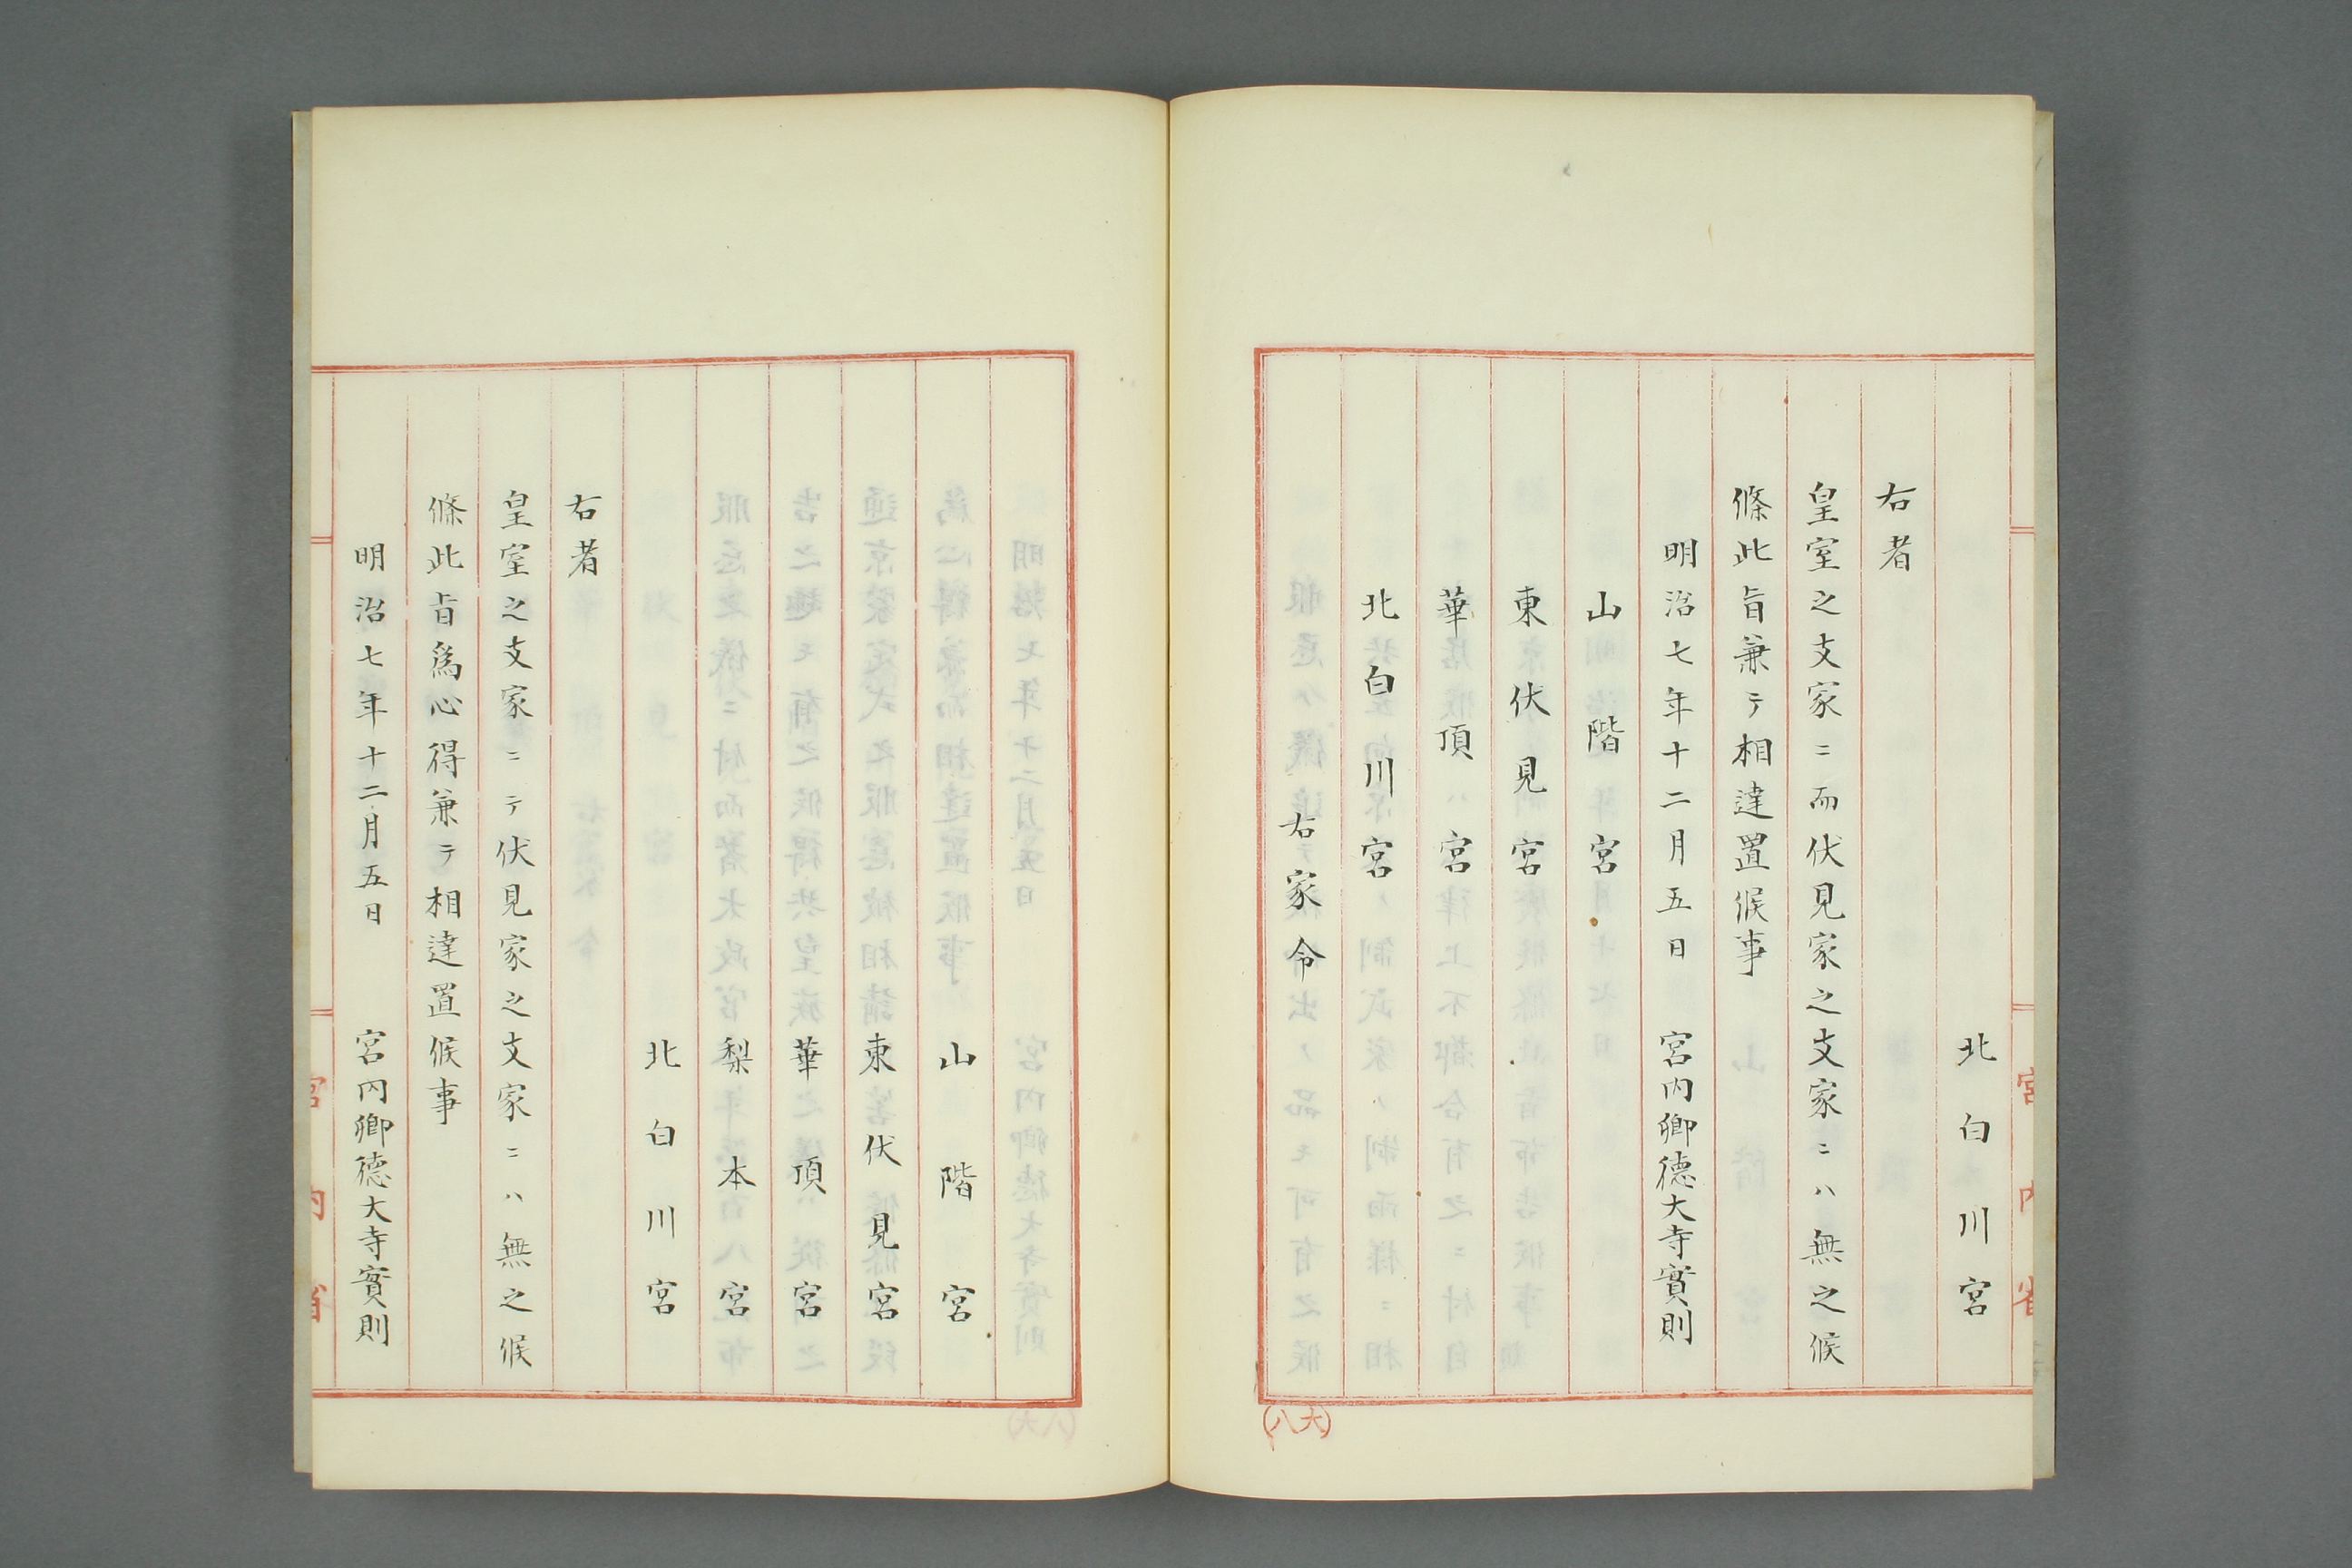 北白川宮
右者
皇室之支家ニ而伏見家之支家ニハ無之候
條此旨兼テ相達置候事
明治七年十二月五日 宮内卿徳大寺實則
山階宮
東伏見宮
華頂宮
北白川宮
右家令
(六八)
宮内省
山階宮
東伏見宮
華頂宮
梨本宮
北白川宮
右者
皇室之支家ニテ伏見家之支家ニハ無之候
條此旨為心得兼テ相達置候事
明治七年十二月五日 宮内卿徳大寺實則
宮内省